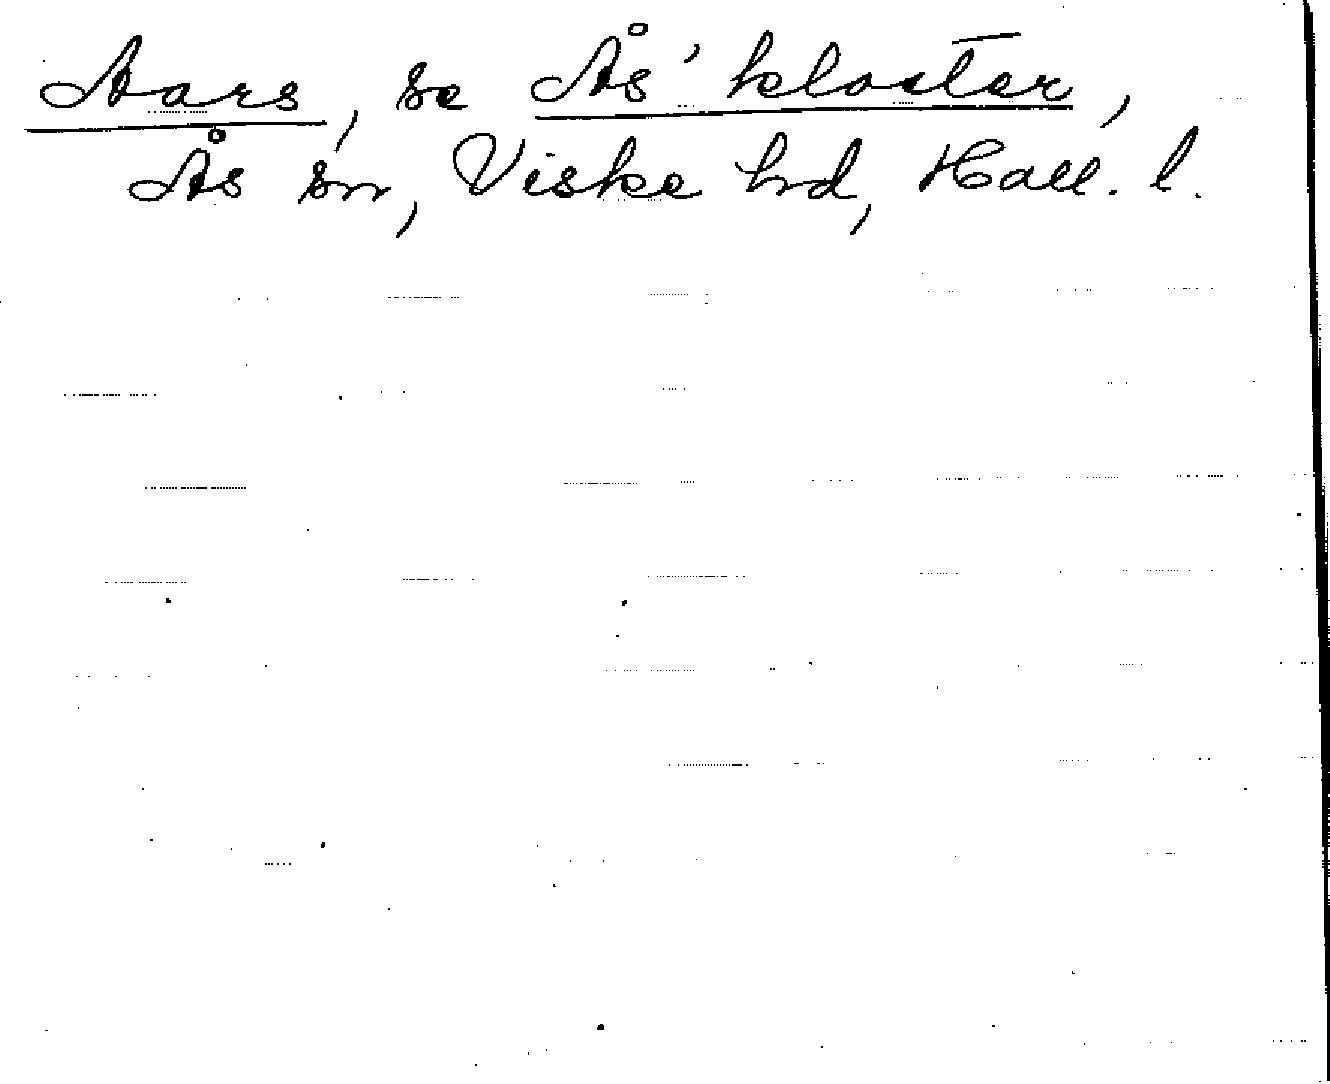 Aars, se Ås' kloster,
Ås sn, Viske hd, Hall. l.